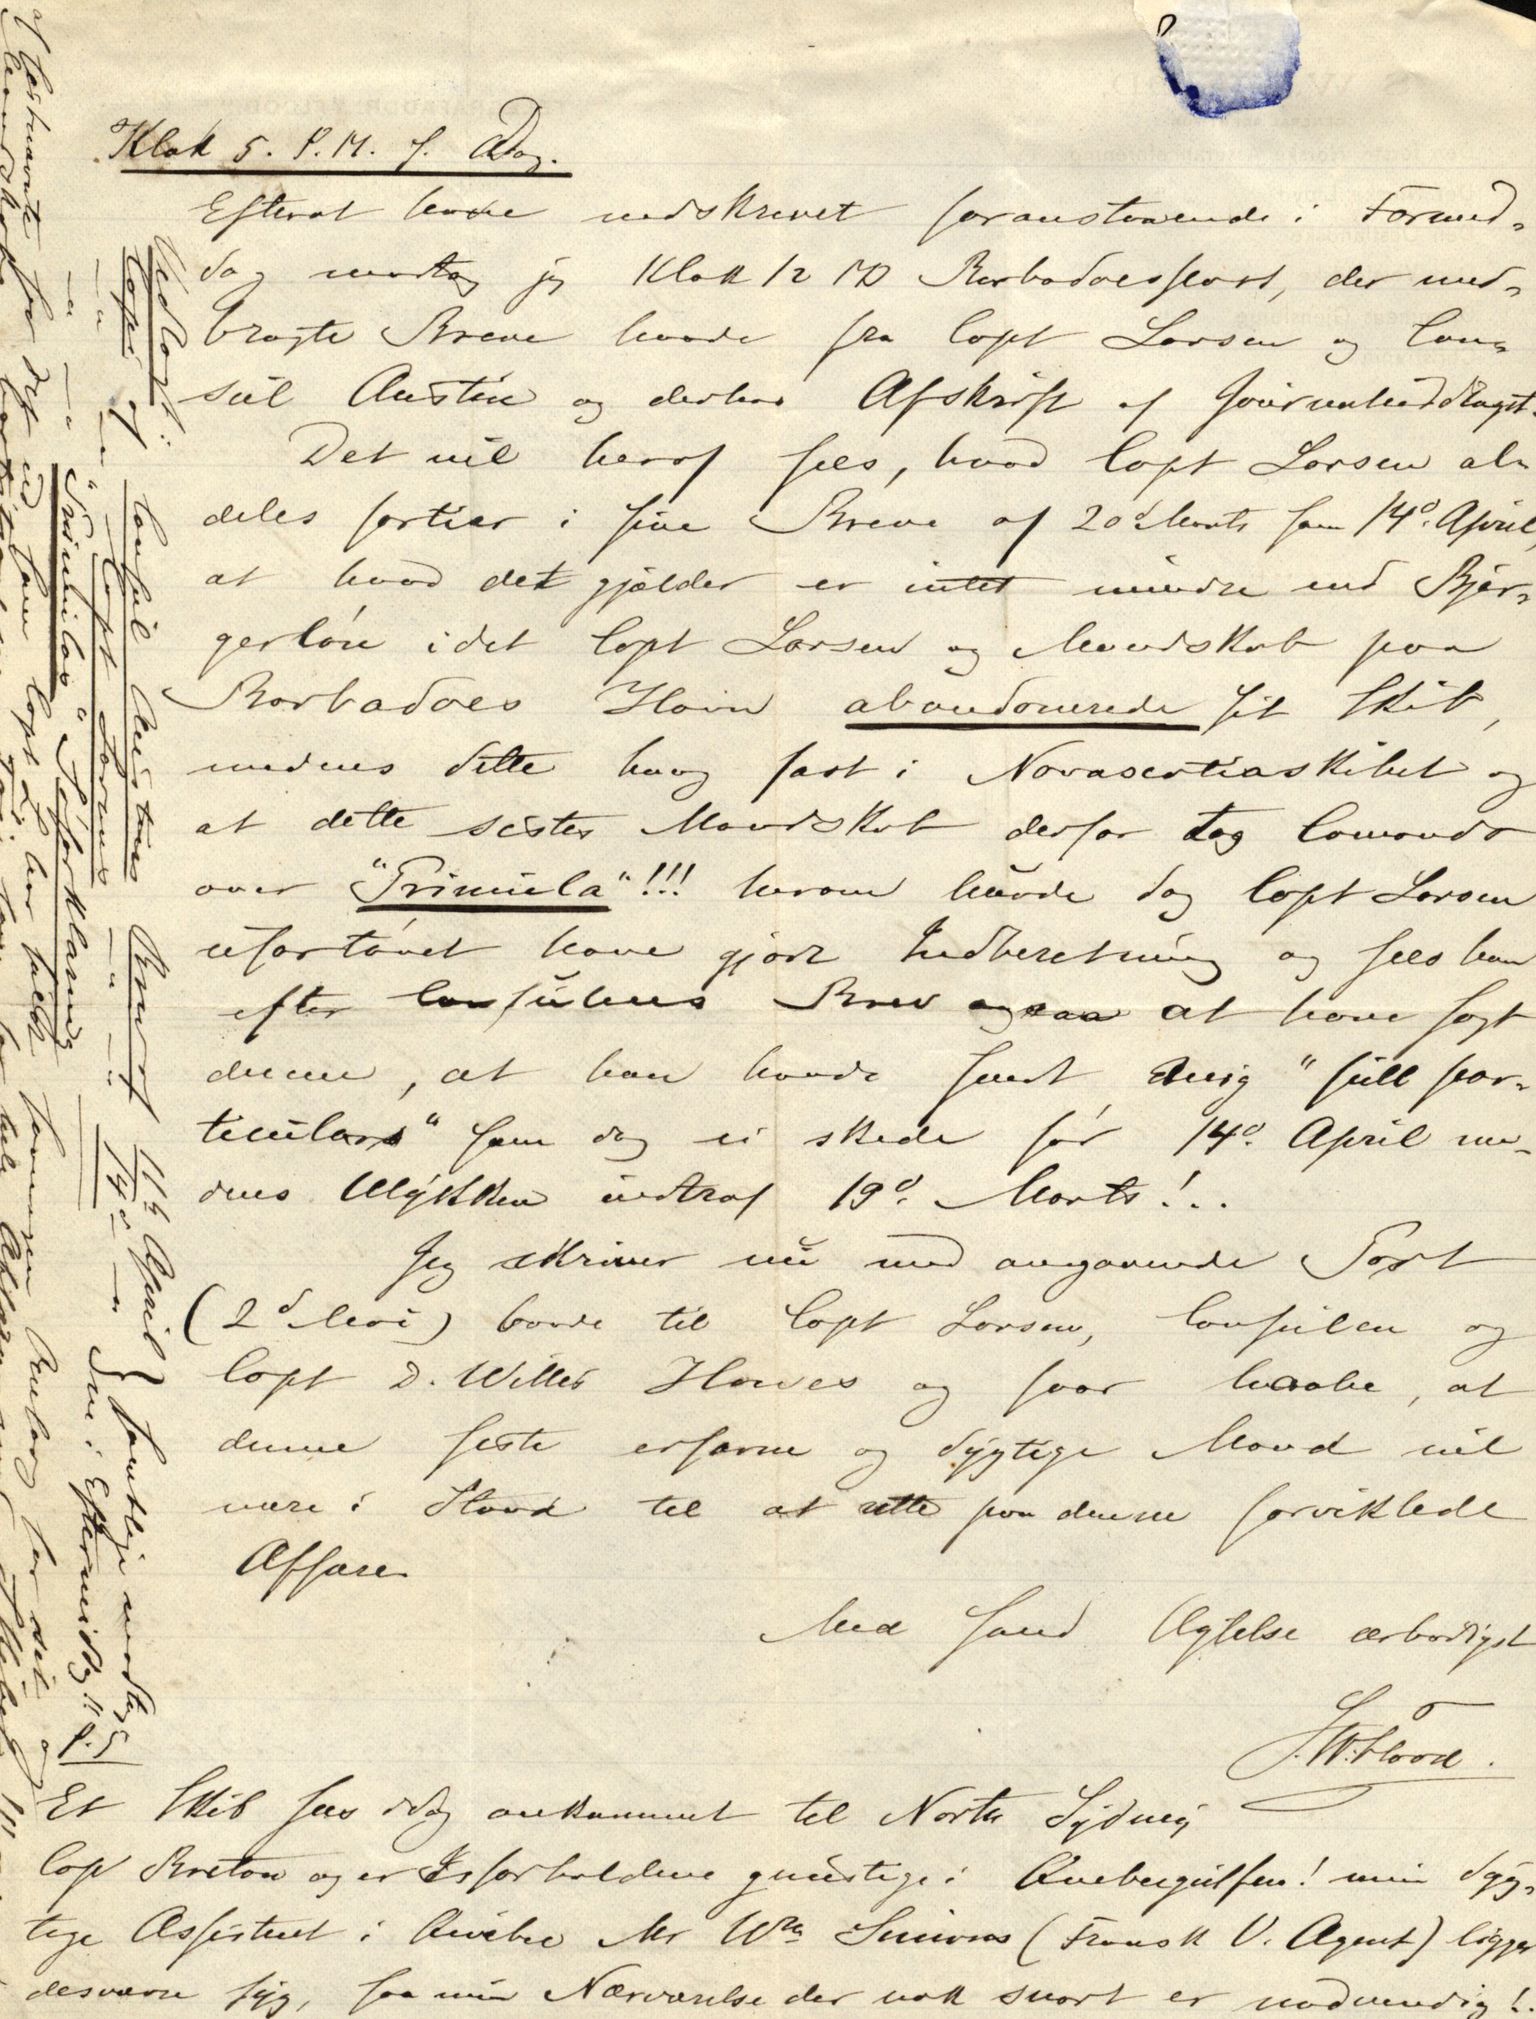 Klok 5. P.M. s. Dag.
Efterat have nedskrevet foranstaaende i Formid-
dag modtog jeg Klok 12 MD Barbadoespost, der med-
bragte Breve baade fra Capt Larsen og Con-
sul Austin og derhos Afskrift af Journaluddraget.
Det vil heraf sees, hvad Capt Larsen al-
deles fortier i sine Breve af 20d Marts som 14d. April,
at hvad det gjælder er intet mindre end Bjer-
gerløn idet Capt Larsen og Mandskab paa
Barbadoes Havn abandonerede sit Skib,
medens dette hang fast i Novascotiaskibet og
at dette sistes Mandskab derfor tog Comando
over "Primula"!!! herom burde dog Capt Larsen
ufortøvet have gjort Indberetning og sees han
efter Consulens Brev ogsaa at have sagt
denne, at han havde sendt mig "full par-
ticulars" som dog ei skede før 14d. April me-
dens Ulykken indtraf 19d. Marts!..
Jeg skriver nu med omgaaende Post
(2d Mai) baade til Capt Larsen, Consulen og
Capt D. Willis Howes og faar haabe, at
denne siste erfarne og dygtige Mand vil
være i Stand til at rette paa denne forviklede
Affære.
Med sand Agtelse ærbødigst
S.W. Flood.
Et Skib sees idag ankommet til North Sydney
Cap Breton og er Isforholdene gunstige i Quebecgulfen! min dyg-
tige Assistent i Quebec Mr Wm Simons (Fransk V. Agent) ligger
desværre syg, saa min Nærværelse der nok snart er nødvendig!.
Vedlagt:
Copi af Consul Austins Brev af 11d April
" " " Capt Larsens " " 14d " "
" " " "Primulas" Søforklaring
samtlige modtag
den i Eftermiddag!! P.S